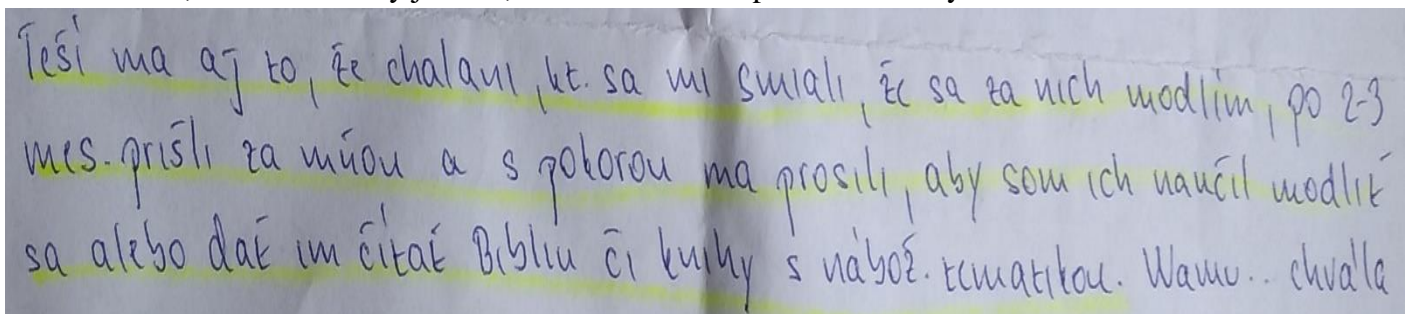 Teší ma aj to, že chalani, kt. sa mi smiali, že sa za nich modlím, po 2-3
mes. prišli za mňou a s pokorou ma prosili, aby som ich naučil modliť
sa alebo dať im čítať Bibliu či knihy s nábož. tematikou. Wauu.. chvála